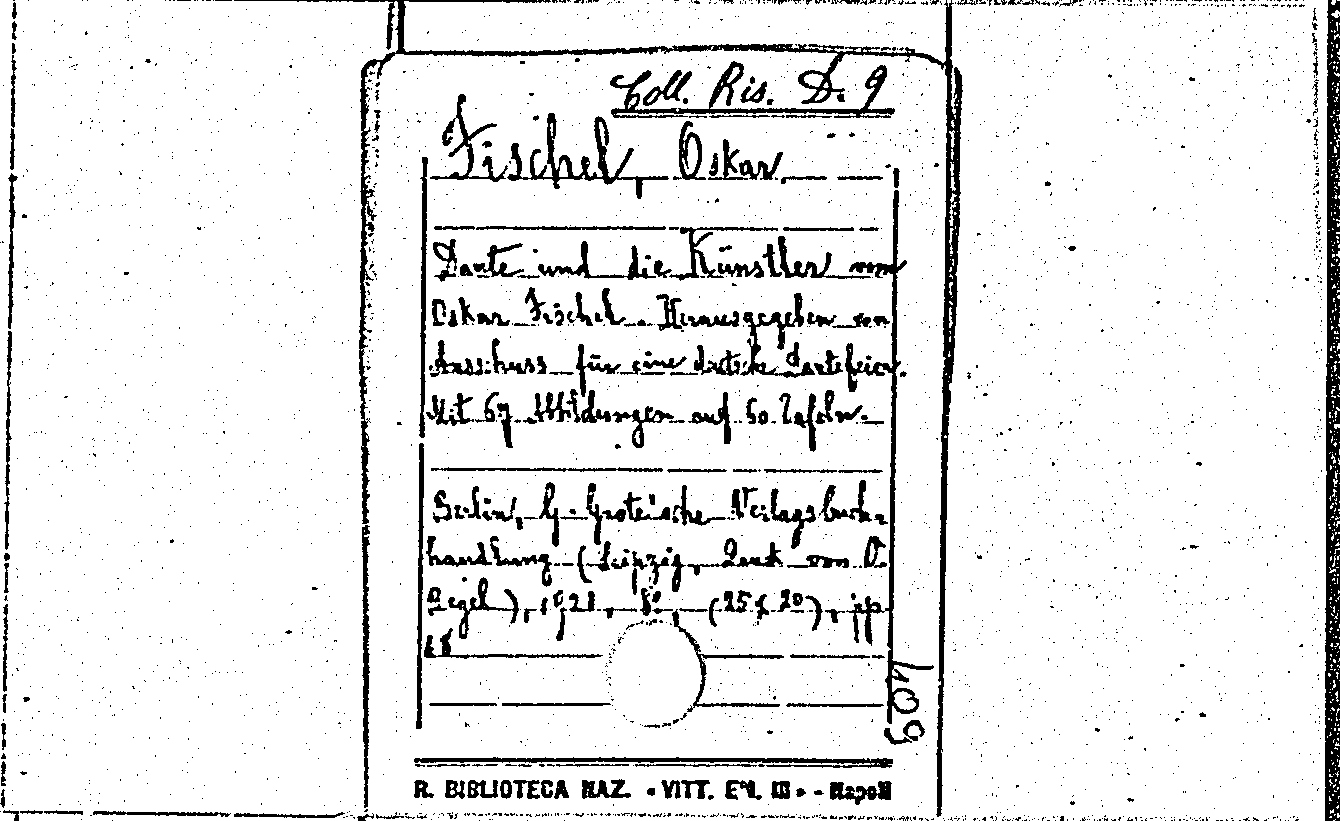 Coll. Ris. D. 9
Fischel, Oskar.
Dante und die Künstler von
Oskar Fischel. Herausgegeben von
Ausschuss für eine deutsche Dantefeier.
Mit 67 Abbildungen auf 60 Tafeln.
Berlin, G. Grote'sche Verlagsbuch-
handlung (Leipzig, Druck von O.
), 1921, 8°, (25 x 20), pp
409
R. BIBLIOTECA NAZ. • VITT. EM. III • - Napoli